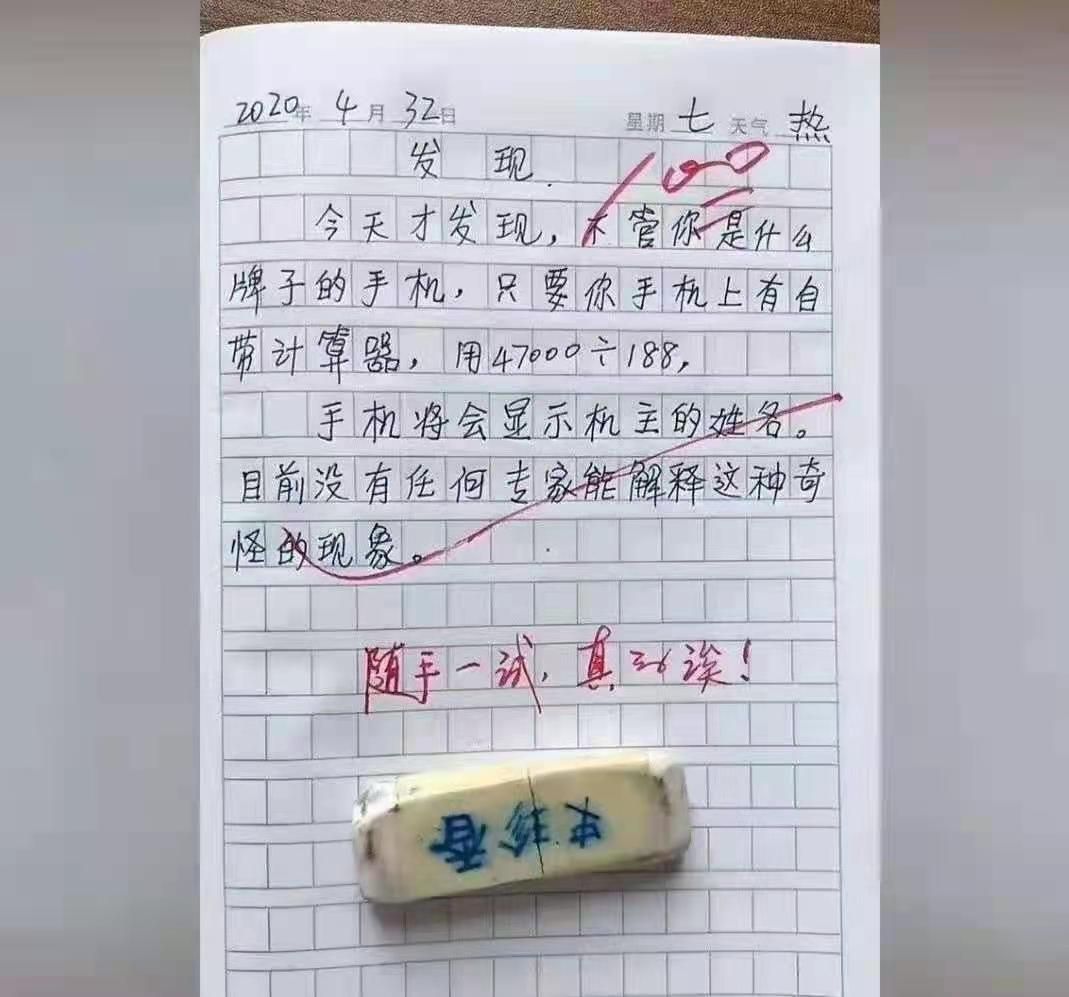 2020年 4月 32日 星期 七 天气 热
发现.
100
今天才发现，不管你是什么
牌子的手机，只要你手机上有自
带计算器，用47000÷188，
手机将会显示机主的姓名。
目前没有任何专家能解释这种奇
怪的现象。
随手一试，真is诶！
史珍香